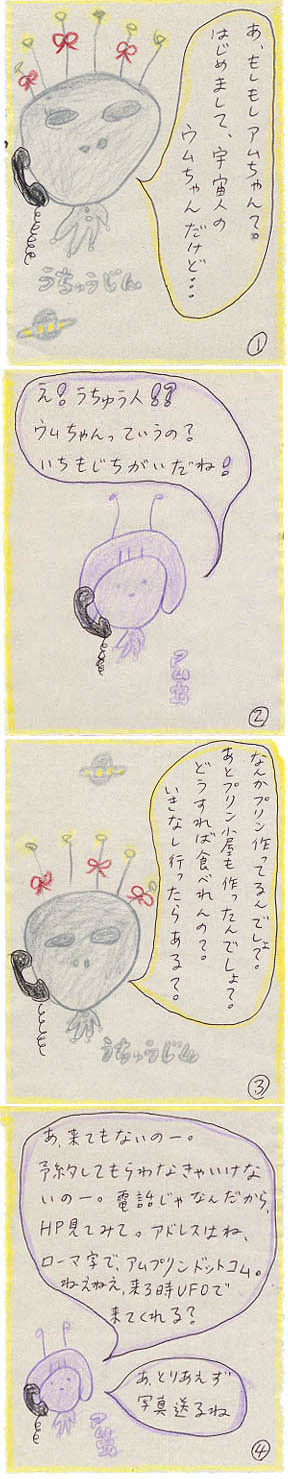 あ、もしもしアムちゃんて?
はじめまして、宇宙人の
ウムちゃんだけど…
うちゅうじん
①
え!うちゅう人!!?
ウムちゃんっていうの?
いちもじちがいだね!
アム
②
なんかプリン作ってるんでしょ?
あとプリン小屋も作ったんでしょ?
どうすれば食べれんの?
いきなし行ったらある?
うちゅうじん
③
あ、来てもないのー。
予約してもらわなきゃいけな
いのー。電話じゃなんだから、
HP見てみて。アドレスはね、
ローマ字で、アムプリンドットコム。
ねえねえ、来る時UFOで
来てくれる?
あ、とりあえず
写真送るね
アム
④